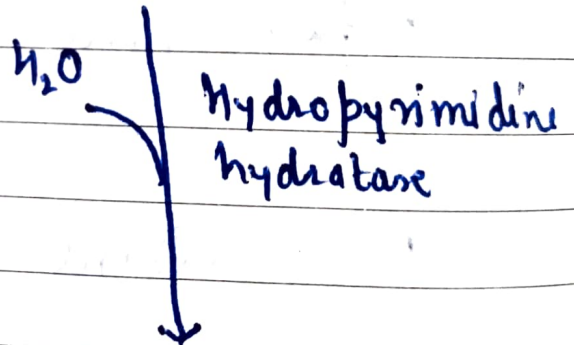 H₂O
Hydropyrimidine
hydratase